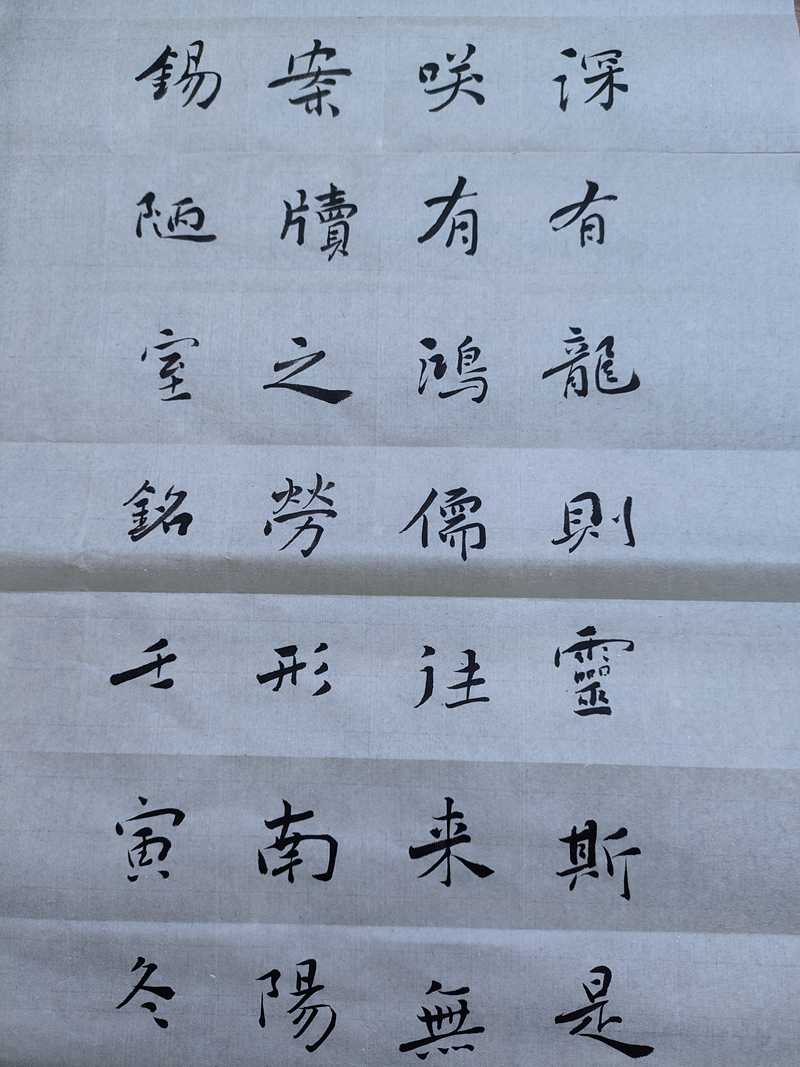 深有龍則靈斯是
咲有鴻儒往来無
案牘之勞形南陽
錫陋室銘壬寅冬